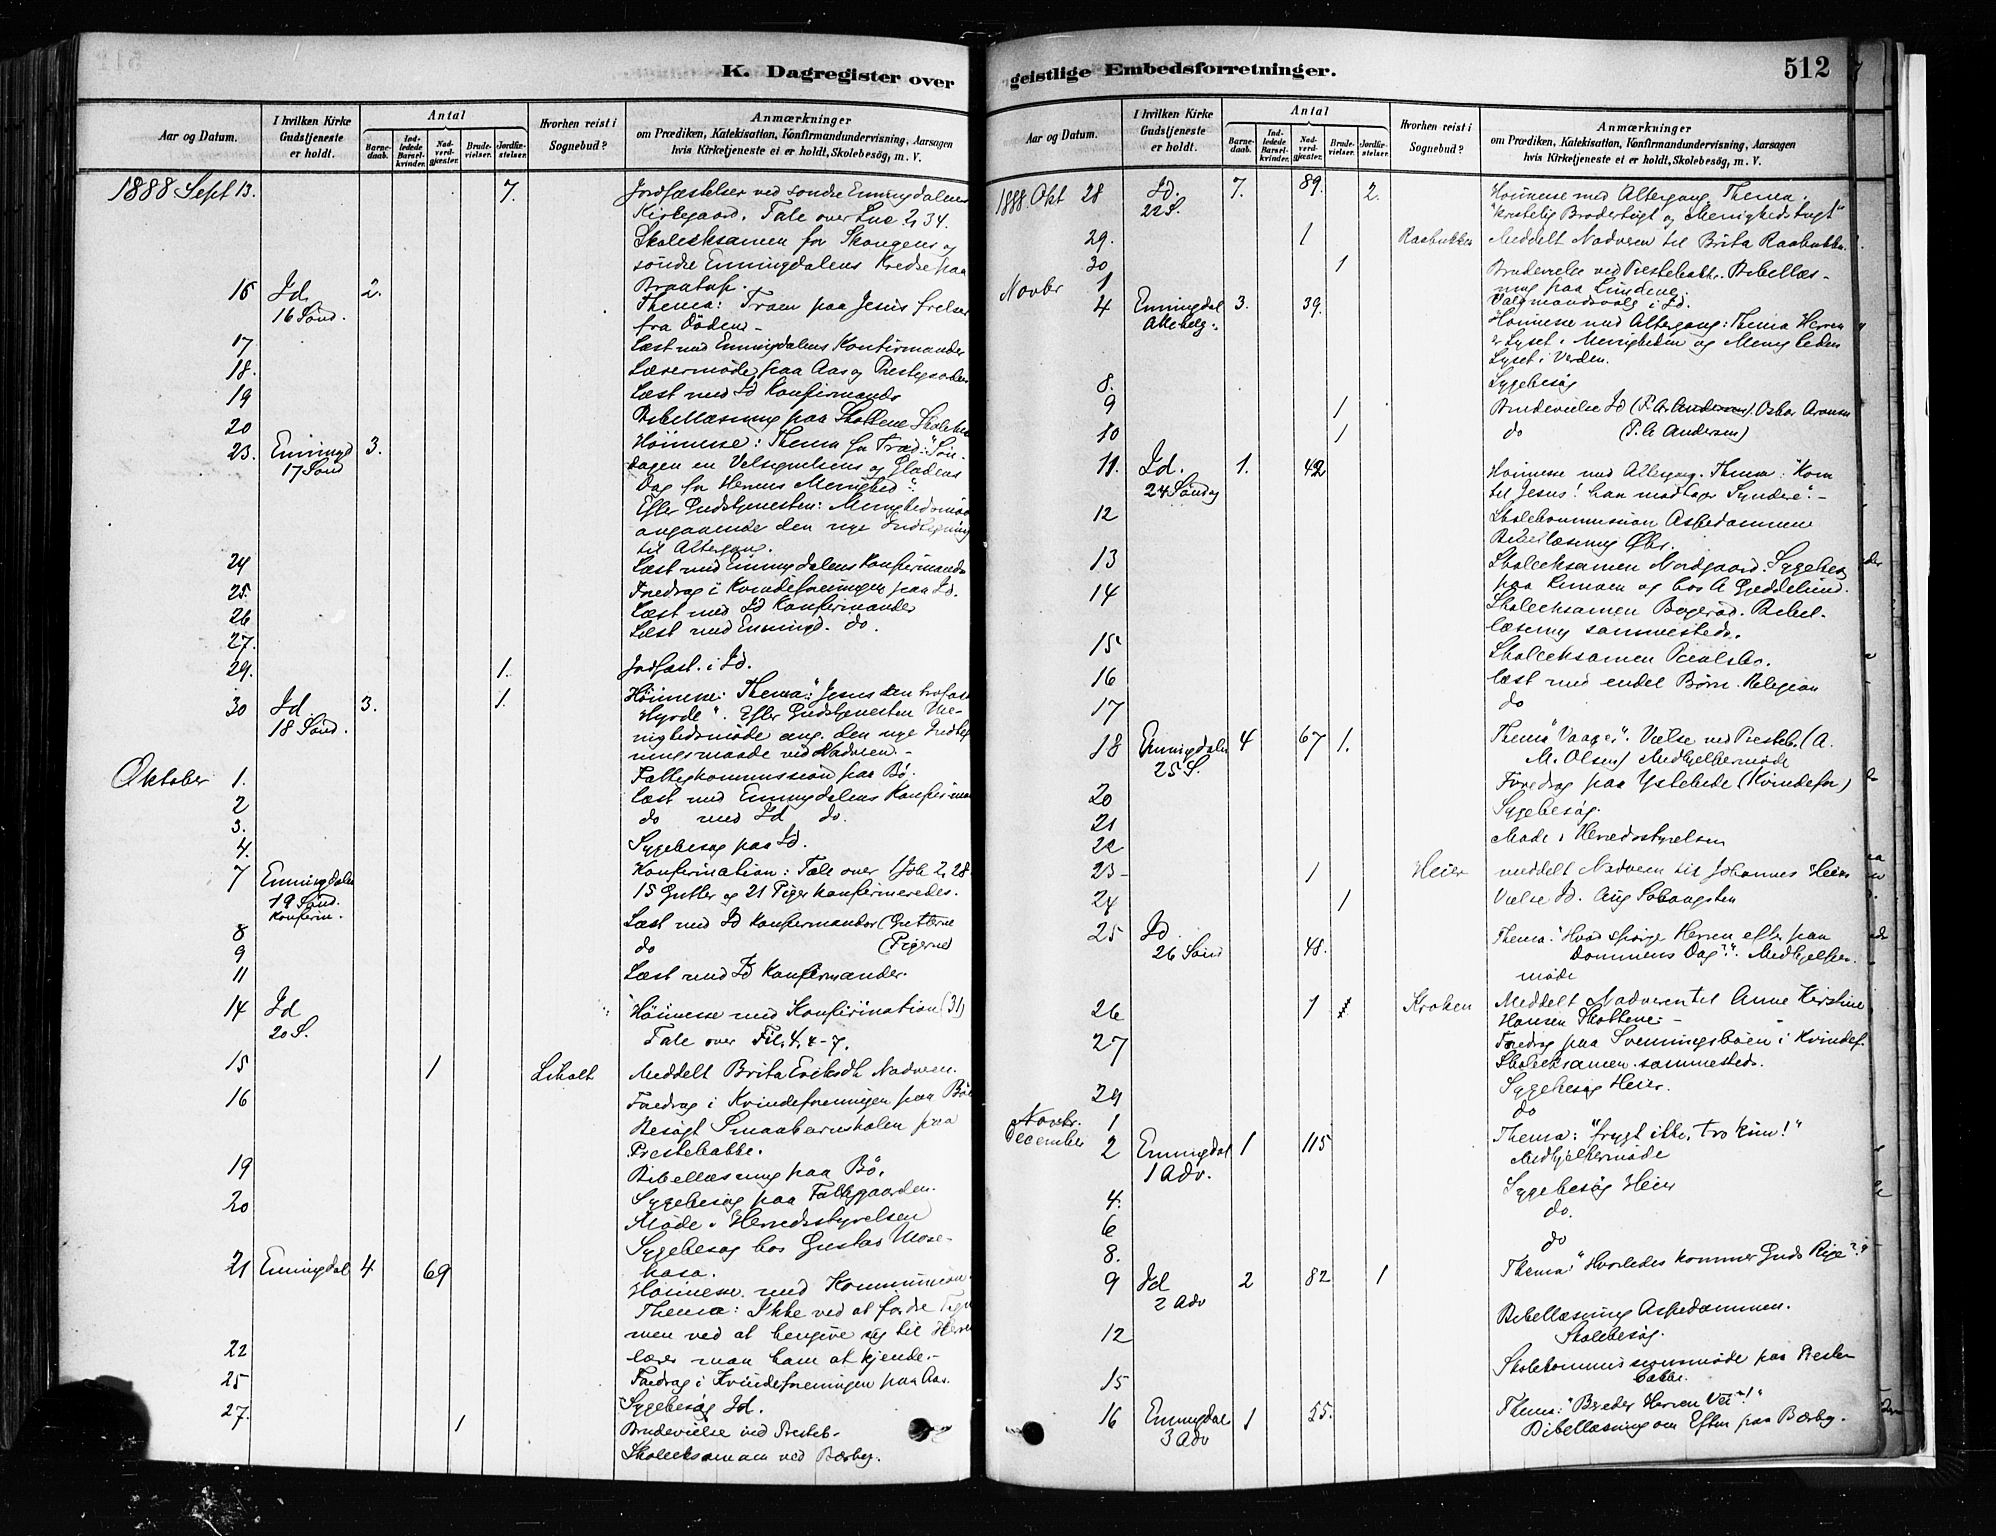 K. Dagregister over
Aar og Datum.
I hvilken Kirke Gudstjeneste er holdt.
Antal
Barnedaab.
Indledede Barselkvinder.
Nadverdgjæster.
Brudevielser.
Jordfæstelser.
Hvorhen reist i Sognebud?
Anmærkninger
om Prædiken, Katekisation, Konfirmandundervisning, Aarsagen
hvis Kirketjeneste ei er holdt, Skolebesög, m. V.
1888 Sept 13. 7. Jordfæstelser ved søndre Enningdalens
Kirkegaard. Tale over Luc 2, 34.
Skoleeksamen for Skongens og
søndre Enningdalens Kredse paa
16 Id. 2.
16 Sönd. Thema: Troen paa Jesus frelser
fra Döden –
17 Læst med Enningdalens Konfirmander
18. Lærermøde paa Aas og Prestegaarden
19 Læst med Id Konfirmander
20 Bibellæsning paa Skottene Skolehus
23. Enningd 3. Höimesse: Thema for Præd: "Søn-
17 Sönd dagen en Velsignelsens og Glædens
Dag for Herrens Menighed".
Efter Gudstjenesten: Menighedsmöde
angaaende den nye Indtegning
til Altergang.
24 Læst med Enningdalens Konfirmander
25. Foredrag i Kvindeforeningen paa Id.
26 Læst med Id Konfirmander
27. Læst med Enningd. do.
29. 1. Jordfæst. i Id.
30 Id 3. 1. Höimesse: Thema: "Jesus den trofaste
18 Sönd. Hyrde". Efter Gudstjenesten Me-
nighedsmöde ang. den nye Indteg-
ningsmaade ved Nadveren –
Oktober 1. Fattigkommission paa Bö.
2 Læst med Enningdalens Konfirman
3. do med Id do.
4. Sygebesøg paa Id.
7 Enningdalen Konfirmation: Tale over 1 Joh 2, 28
19 Sönd. 15 Gutter og 21 Piger konfirmeredes.
Konfirm.
8 Læst med Id Konfirmander (Gutterne
9 do (Pigerne)
11 Læst med Id Konfirmander.
14 Id Höimesse med Konfirmation (31)
20 S. Tale over Fil. 4, 4–7.
15 1 Liholt Meddelt Brita Eriksdt Nadveren.
16 Foredrag i Kvindeforeningen paa Bö
Besøgt Smaabarnskolen paa
Prestebakke.
19 Bibellæsning paa Bö.
20 Sygebesøg paa Fattiggaarden.
Møde i Herredsstyrelsen
Sygebesøg hos Gustav Mose-
21 Enningdal 4 69 hasa.
Höimesse med Kommunion
Thema: Ikke ved at fordre Tegn
men ved at hengive sig til Herren
22 lærer man ham at kjende. –
25 Foredrag i Kvindeforeningen paa Aas.
Sygebesøg Id.
27. 1 Brudevielse ved Presteb.
Skoleeksamen ved Bærby.
geistlige Embedsforretninger. 512
Aar og Datum.
I hvilken Kirke Gudstjeneste er holdt.
Antal
Barnedaab.
Indledede Barselkvinder.
Nadverdgjæster.
Brudevielser.
Jordfæstelser.
Hvorhen reist i Sognebud?
Anmærkninger
om Prædiken, Katekisation, Konfirmandundervisning, Aarsagen
hvis Kirketjeneste ei er holdt, Skolebesög, m. V.
1888. Okt 28 Id. 7. 89. 2. Höimesse med Altergang. Thema:
22 S. "Kristelig Brodertugt og Menighedstugt"
29. 1 Raabukken Meddelt Nadveren til Brita Raabukken.
30 1 Brudevielse ved Prestebakke. Bibellæs-
Novbr 1 ning paa Lundene.
Valgmandsvalg i Id.
4 Enningdal 3. 39. Höimesse med Altergang: Thema Herren
Allehelg. er Lyset i Menigheden og Menigheden
Lyset i Verden.
8. Sygebesøg
9 1 Brudevielse Id (P. A. Andersen) Oskar Aronsen
10 1 do (P. A Andersen)
11. Id. 1. 42 Höimesse med Altergang. Thema: "Kom
24 Söndag til Jesus! han modtager Syndere". –
12 Skolekommission Aspedammen
Bibellæsning Øbr.
13 Skoleeksamen Nordgaard. Sygebes
paa og hos A Gjeddelund.
14 Skoleeksamen Bøgerød. Bibel-
læsning sammesteds.
15 Skoleeksamen
16 læst med endel Børn. Religion
17 do
18 Enningdalen 4 67 1. Thema "Vaager". Vielse ved Presteb. (A.
25 S. M. Olsen) Medhjelpermøde
20 Foredrag paa Ystehede (Kvindefor)
21 Sygebesøg.
22 Møde i Herredsstyrelsen
23 1 Heier meddelt Nadveren til Johannes Heier
24 1 Vielse Id. Aug
25 Id. 48. Thema: "Hvad spørge Herren efter paa
26 Sönd Dommens Dag?". Medhjelper-
møde
26 1 Kroken Meddelt Nadveren til Anne Kirstine
Hansen Skottene –
27 Foredrag paa Svenningsbøen i Kvindef.
Skoleeksamen sammesteds.
29 Sygebesøg Heier.
Novbr. 1 do
December 2 Enningdal 1 115 Thema: "frygt ikke, tro kun!"
1 Adv. Medhjelpermøde
4. Sygebesøg Heier
6 do.
8. do
9 Id 2 82 1 Thema: "Hvorledes kommer Guds Rige"?
2 Adv
12 Bibellæsning Aspedammen.
Skolebesøg.
15 Skolekommissionsmøde paa Preste-
bakke.
16 Enningdal 1 55. Thema: "Bereder Herren Vei"!
3 Adv Bibellæsning om Eftm paa Bærby.